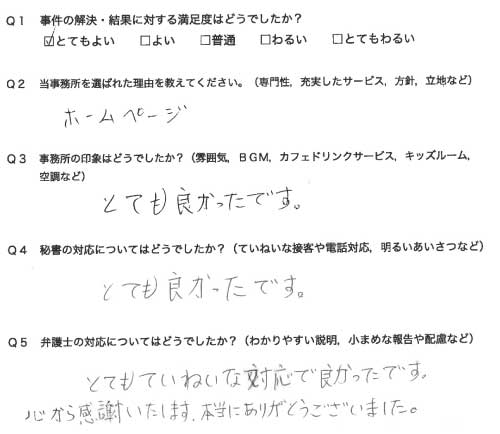 Q1 事件の解決・結果に対する満足度はどうでしたか？
☑とてもよい □よい □普通 □わるい □とてもわるい
Q2 当事務所を選ばれた理由を教えてください。（専門性，充実したサービス，方針，立地など）
ホームページ
Q3 事務所の印象はどうでしたか？（雰囲気，BGM，カフェドリンクサービス，キッズルーム，
空調など）
とても良かったです。
Q4 秘書の対応についてはどうでしたか？（ていねいな接客や電話対応，明るいあいさつなど）
とても良かったです。
Q5 弁護士の対応についてはどうでしたか？（わかりやすい説明，小まめな報告や配慮など）
とてもていねいな対応で良かったです。
心から感謝いたします、本当にありがとうございました。